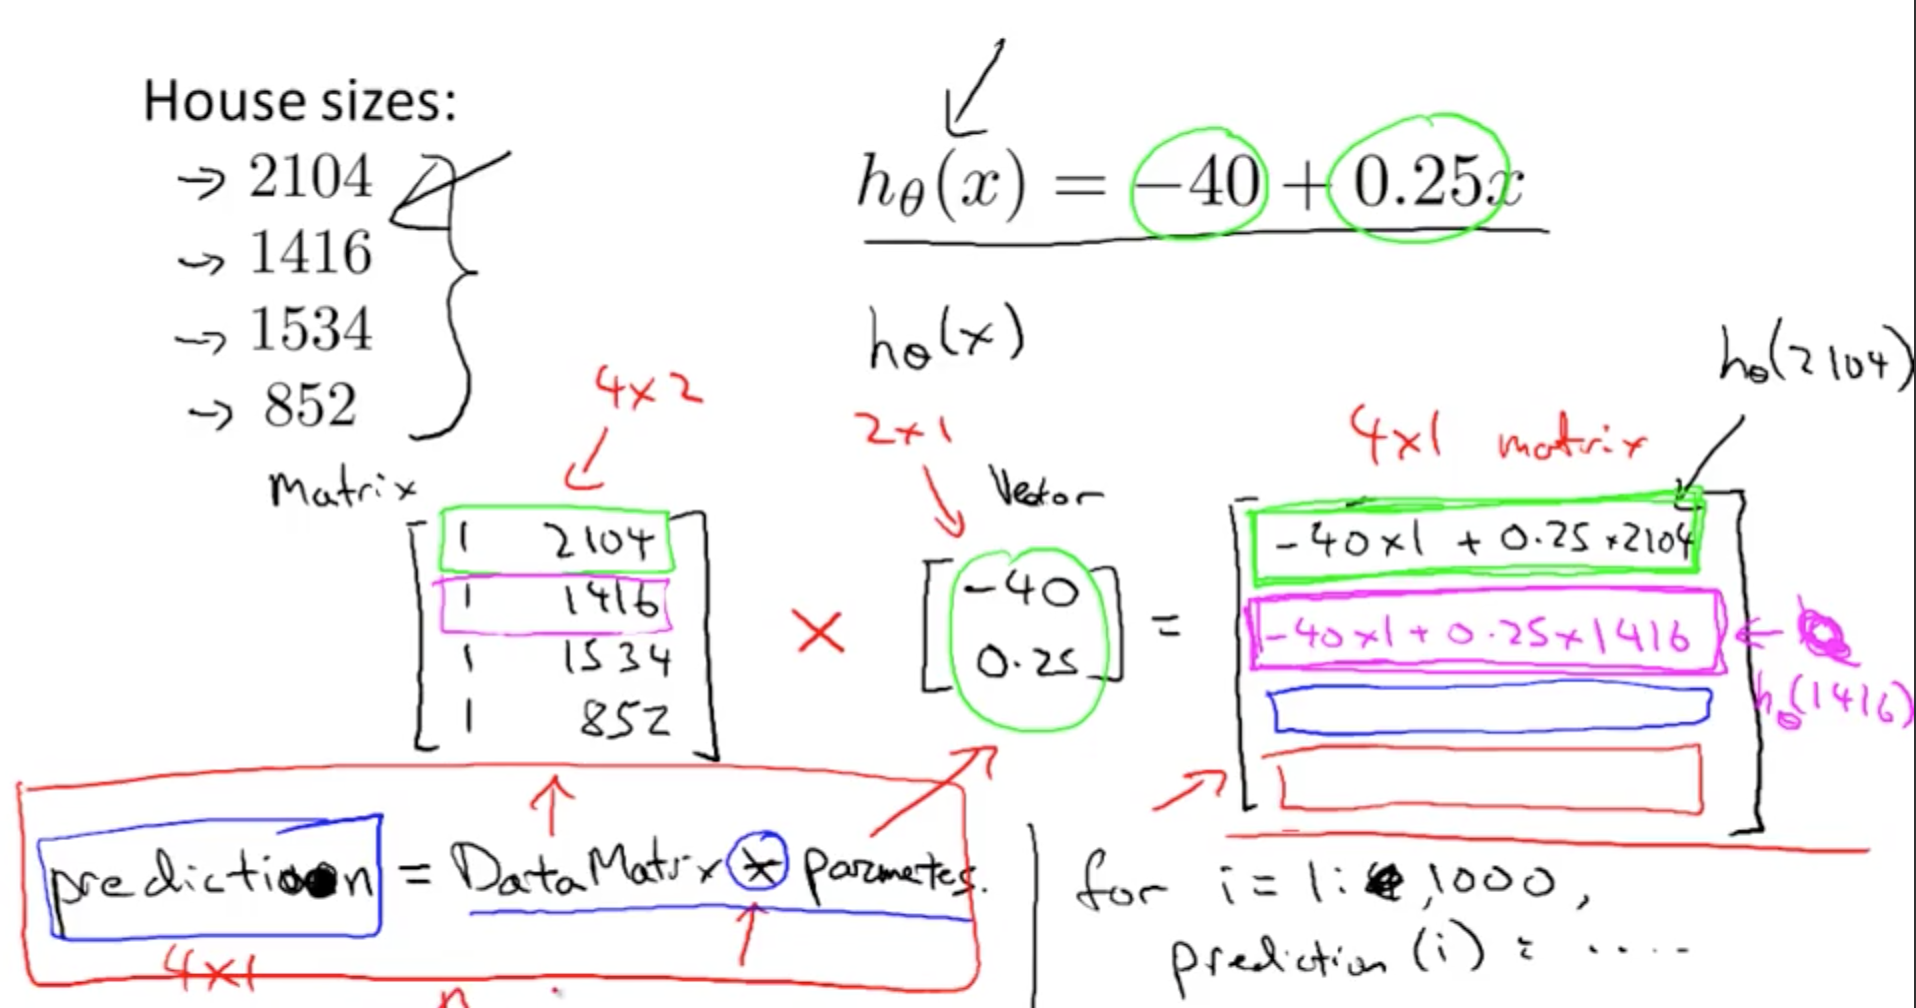 House sizes:
→ 2104
→ 1416
→ 1534
→ 852
hθ(x) = −40 + 0.25x
hθ(x)
hθ(2104)
4x2
2x1
4x1 matrix
Matrix
Vector
1 2104
1 1416
1 1534
1 852
×
-40
0.25
=
-40x1 + 0.25x2104
-40x1 + 0.25x1416
hθ(1416)
prediction = DataMatrix * parametes.
4x1
for i=1:1000,
prediction(i) = ....